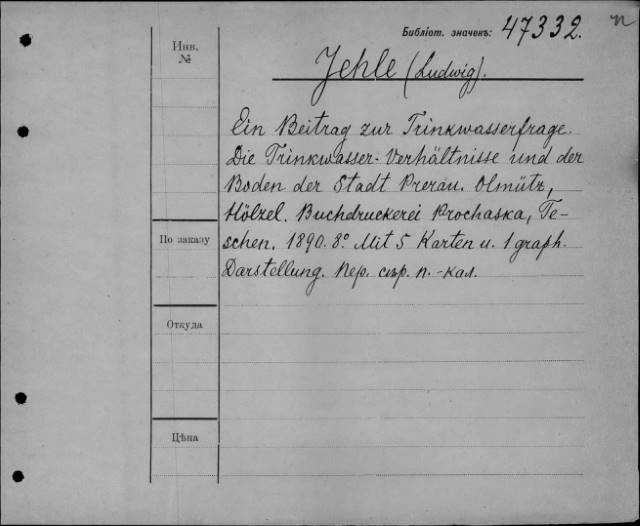 Библіот. значекъ: 47332.
Инв. №
Jehle (Ludwig).
Ein Beitrag zur Trinkwasserfrage.
Die Trinkwasser-Verhältnisse und der
Boden der Stadt Prerau. Olmütz,
Hölzel. Buchdruckerei Prochaska, Te-
schen. 1890. 8º. Mit 5 Karten u. 1 graph.
Darstellung. Пер. п.-кал.
По заказу
Откуда
Цѣна